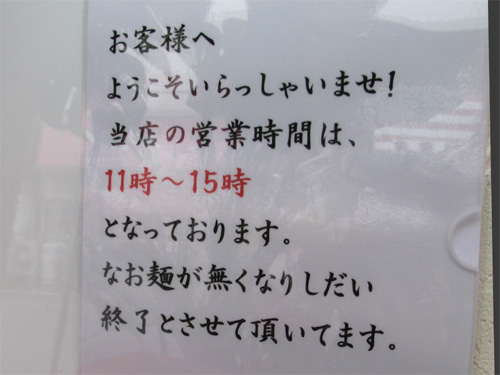 お客様へ
ようこそいらっしゃいませ!
当店の営業時間は、
11時~15時
となっております。
なお麺が無くなりしだい
終了とさせて頂いてます。